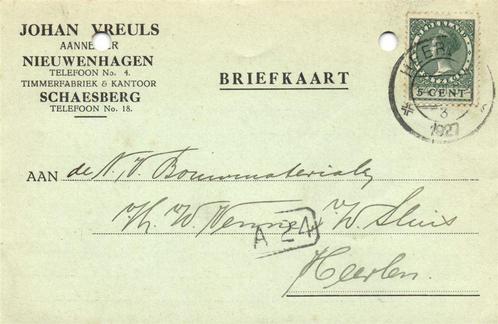 JOHAN VREULS
AANNEMER
NIEUWENHAGEN
TELEFOON No. 4.
TIMMERFABRIEK & KANTOOR
SCHAESBERG
TELEFOON No. 18.
BRIEFKAART
NEDERLAND
5 CENT
HEERL
3
1927
AAN de N.V. Bouwmaterialen
Th. W. v/d Sluis
A 24
Heerlen.